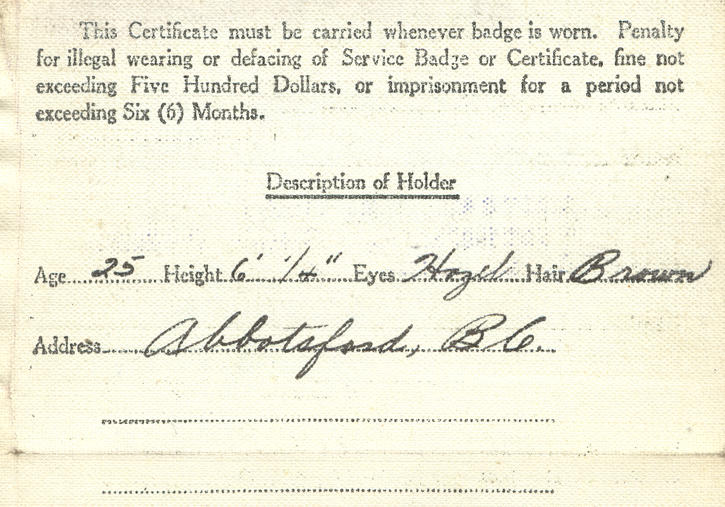 This Certificate must be carried whenever badge is worn. Penalty
for illegal wearing or defacing of Service Badge or Certificate, fine not
exceeding Five Hundred Dollars, or imprisonment for a period not
exceeding Six (6) Months.
Description of Holder
Age 25 Height 6' 1/4" Eyes Hazel Hair Brown
Address Abbotsford, B.C.